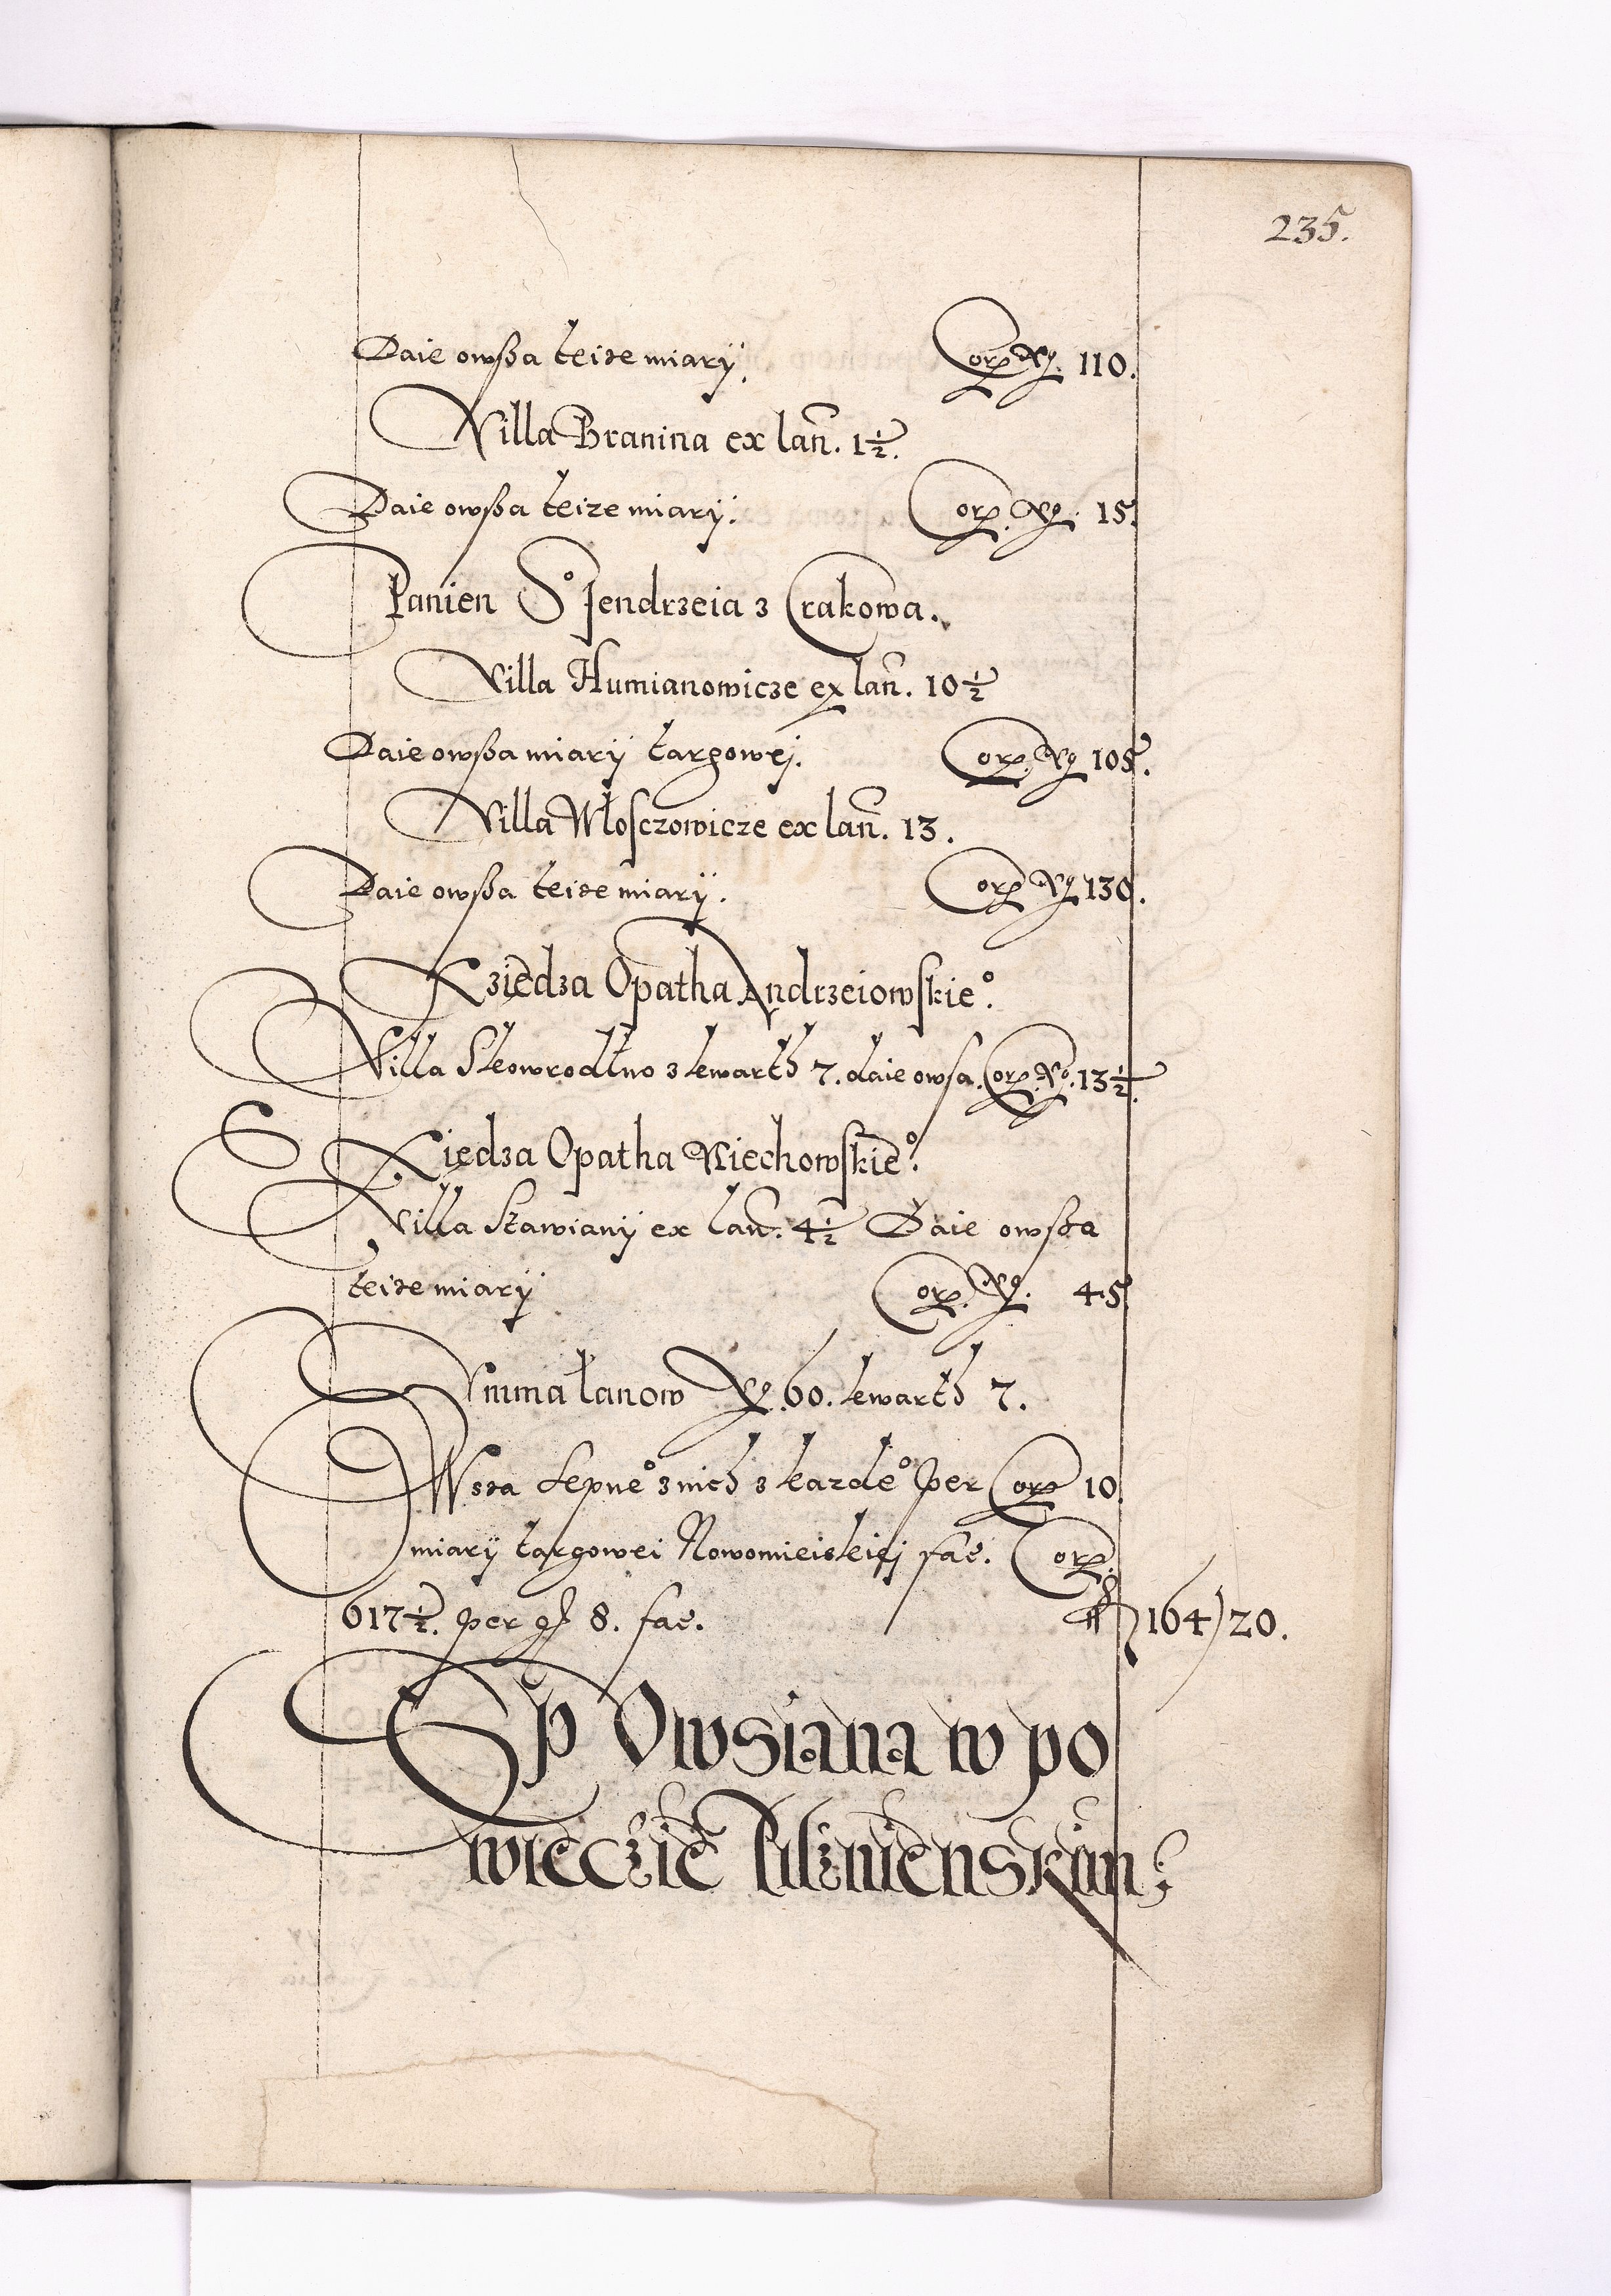 235.
Daie owßa teize miary. Corą No. 110.
Villa Branina ex lan. 1½.
Daie owßa teize miary. Corą. No. 15.
Panien S° Jendrzeia z Crakowa.
Villa Humianowicze ex lan. 10½
Daie owßa miary targowej. Corą. No 105.
Villa Włosczowicze ex lan. 13.
Daie owßa teize miary. Corą No 130.
Kziędza Opatha Andrzeiowskie°.
Villa Skowrodłno z kwarth 7. daie owsa. Corą. No. 13½.
Xiędza Opatha Miechowskie°.
Villa Sławiany ex lan. 4½ Daie owßa
teize miary Corą. No. 45
Summa łanow No. 60. kwarth 7.
Owsa sepne° z nich z kazde° per Corą 10
miary targowei Nowomieiskiej fac. Corą.
617½. per gr 8. fac. fl 164/20.
Sep Owsiana w po
wieczie Pilznienskim: